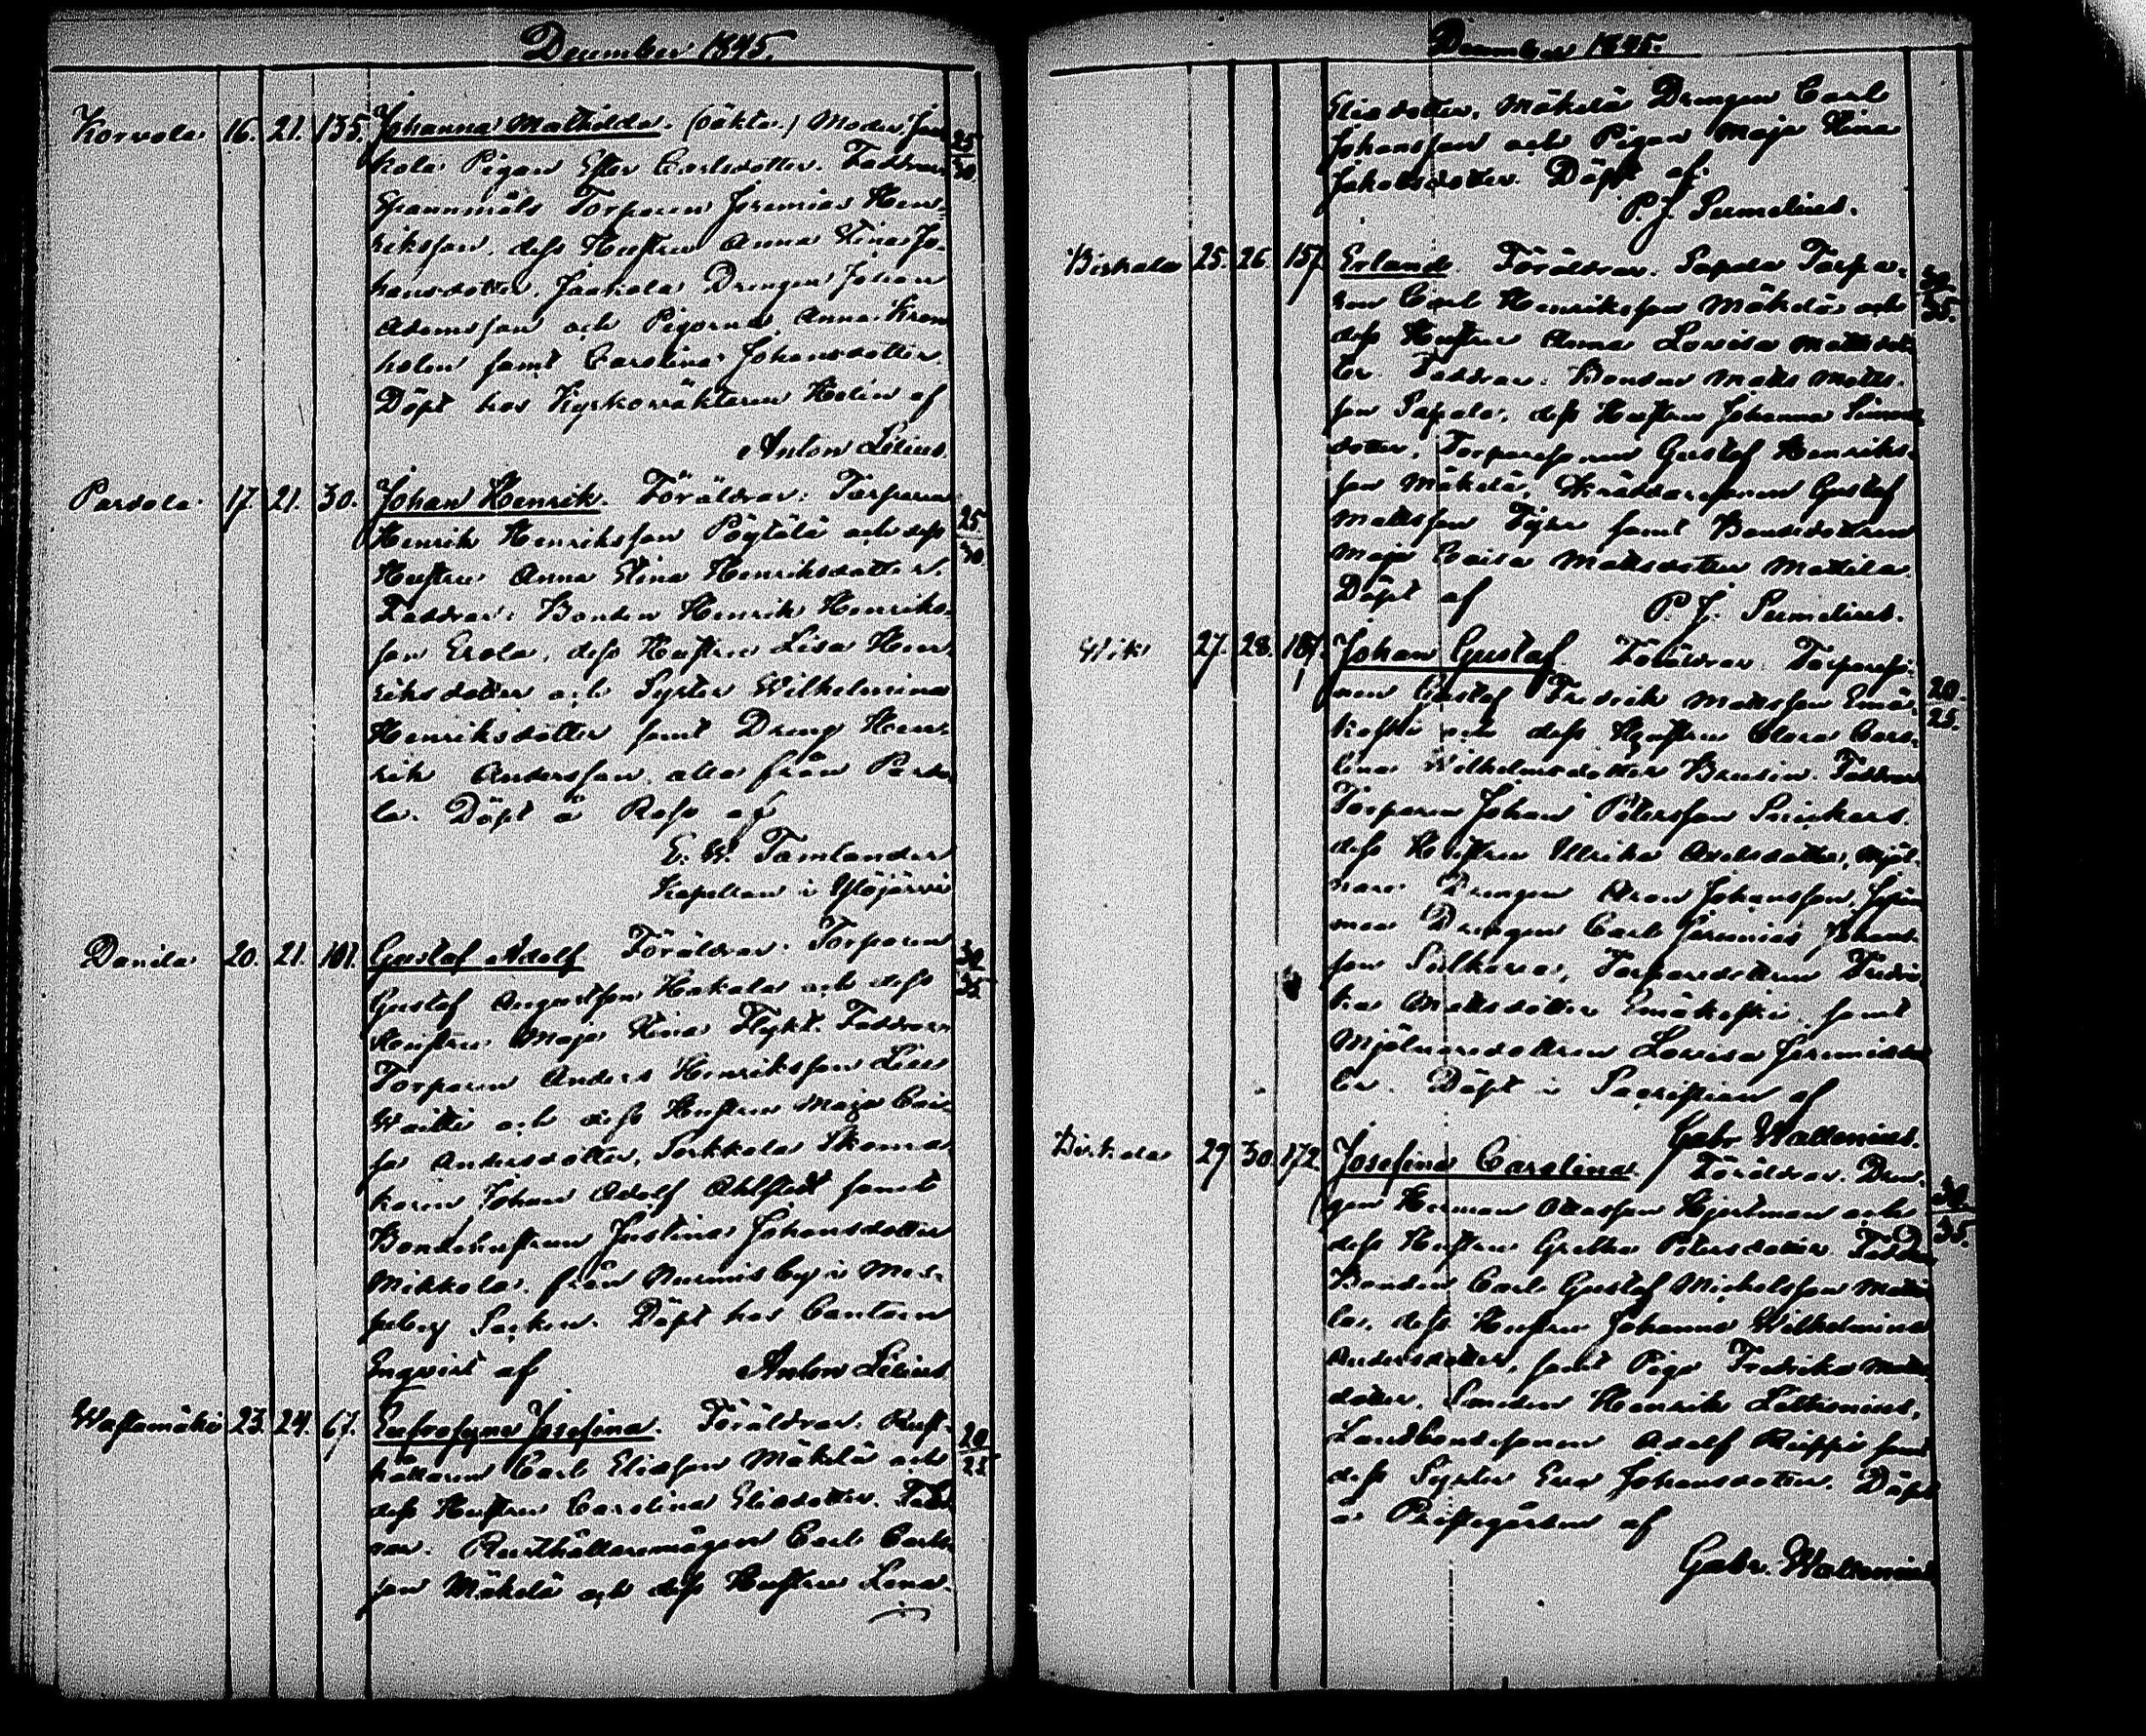 December 1845.
Korvola 16. 21. 135. Johanna Mathilda. (oäkta.) Moder: Jaa
kola Pigan Ester Carlsdotter. Faddrar 25/30.
Spannmåls Torparen Jeremias Hen-
riksson, dess Hustru Anna Stina Jo-
hansdotter, Jaakola Drengen Johan
Adamsson och Pigorna Anna Kron
holm samt Carolina Johansdotter.
Döpt hos Kyrkowäktaren Helin af
Anton Lilius.
Pardola. 17. 21. 30. Johan Henrik. Föräldrar: Torparen
Henrik Henriksson Pöytälä och dess 25/30.
Hustru Anna Stina Henriksdotter.
Faddrar: Bonden Henrik Henriks-
son Erola, dess Hustru Lisa Hen
riksdotter och Syster Wilhelmina
Henriksdotter samt Dreng Hen-
rik Andersson alla från Pardo
la. Döpt å Resa af
E. W. Tamlander
Kapellan i Ylöjärvi
Danila 20. 21. 101. Gustaf Adolf Föräldrar: Torparen 30/35
Gustaf Augustsson Hakala och dess
Hustru Maja Stina Flykt. Faddrar
Torparen Anders Henriksson
Waitti och dess Hustru Maja Cai-
sa Andersdotter, Sorkkala Skoma
karen Johan Adolf Ahlstedt samt
Bondehustrun Justina Johansdotter
Mikkola från Nurmis by i Mes-
suby Socken. Döpt hos Cantorn
Engvist af Anton Lilius
Wastamäki 23. 24. 67. Eufrosyne Josefina. Föräldrar: Rust-
hållaren Carl Eliasson Mäkelä och 20/25
dess Hustru Carolina Elisdotter. Fadd
rar. Rusthållaremågen Carl Carls
son Mäkelä och dess Hustru Lena
December 1845.
Elisdotter, Mäkelä Drengen Carl
Johansson och Pigan Maja Stina
Jakobsdotter. Döpt af
P. J. Sumelius.
Birkala 25. 26. 157. Erland. Föräldrar. Sapala Torpa-
ren Carl Henriksson Mäkelä och 30/35.
dess Hustru Anna Lovisa Mattsdot
ter. Faddrar: Bonden Matts Matts-
son Sapala, dess Hustru Johanna Simons
dotter, Torparesonen Gustaf Henriks-
son Mäkelä, Skräddaresonen Gustaf
Mattsson Fyhr samt Bondedottren
Maja Caisa Mattsdotter Mattila.
Döpt af P. J. Sumelius.
Wik 27. 28. 187. Johan Gustaf. Föräldrar. Torpareso-
nen Gustaf Fredrik Mattsson Emä 20/25.
koski och dess Hustru Clara Caro-
lina Wilhelmsdotter Brusin. Faddrar
Torparen Johan Petersson
dess Hustru Ulrika Axelsdotter, Mjöl-
nare Drengen Aron Johansson,
Drengen Carl Jeremias
son Torparedottren Fredri
ka Mattsdotter Emäkoski samt
Mjölnaredottren Lovisa Jeremiasdot
ter. Döpt i Sacristian af
Gabr. Wallenius.
Birkala 29 30. 172. Josefina Carolina. Föräldrar. Dren-
gen Herman Mattsson Hjertman och 30/35.
dess Hustru Gretha Petersdotter. Faddrar
Bonden Carl Gustaf Michelsson Matti
la, dess Hustru Johanna Wilhelmina
Andersdotter, samt Piga Fredrika Matts
dotter, Henrik
Landbondesonen Adolf samt
dess Syster Eva Johansdotter. Döpt
å Prestegården af
Gabr. Wallenius